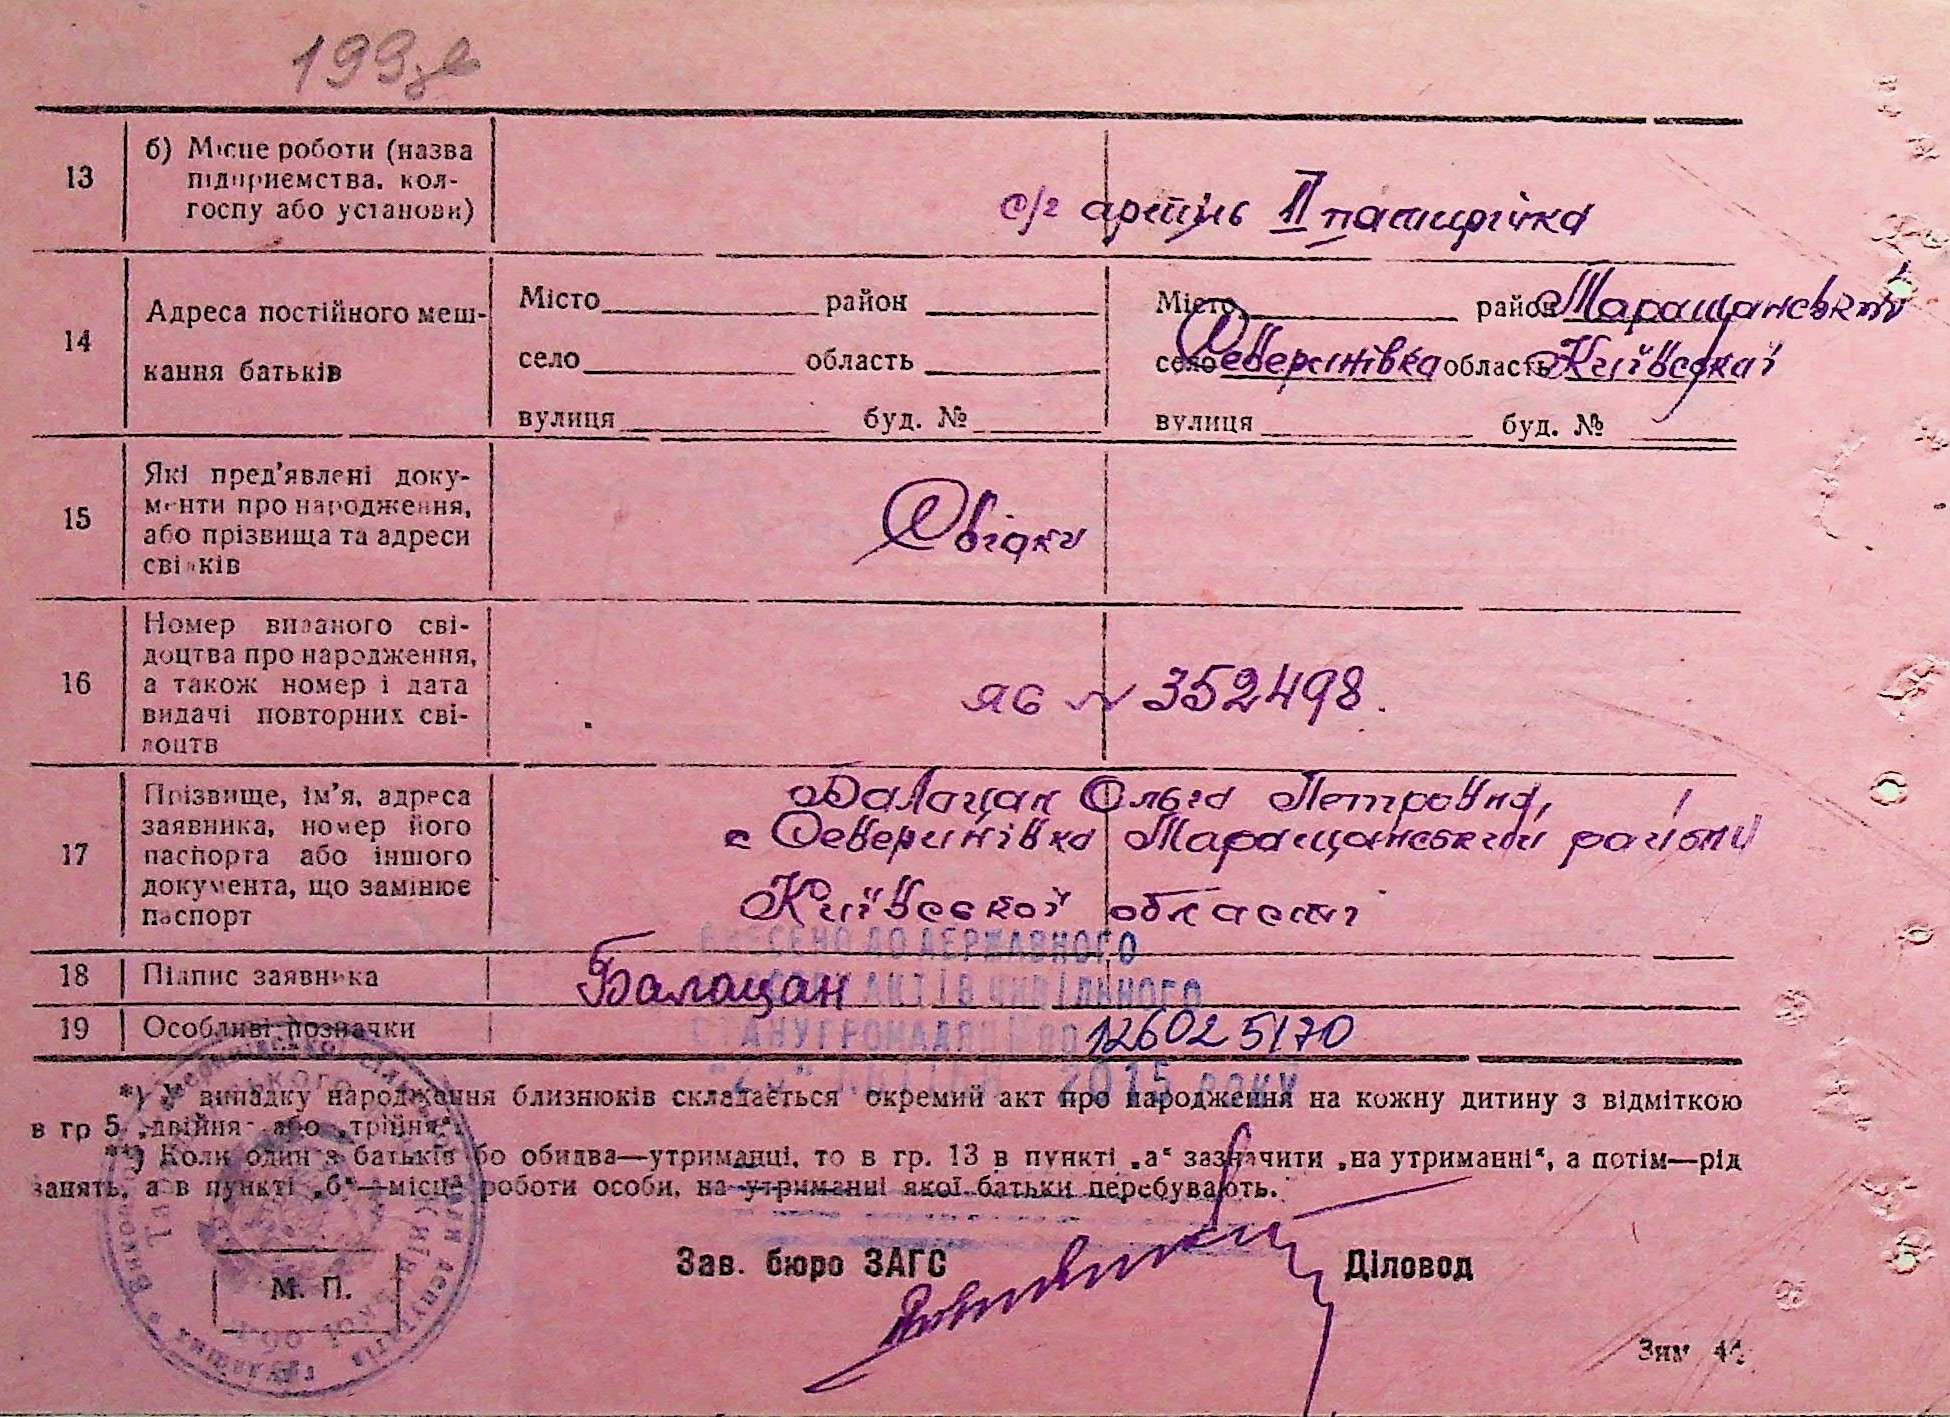 199зв
13 б) Місце роботи (назва
підприємства, кол-
госпу або установи)
с/г артіль ІІ пятирічка
14 Адреса постійного меш-
кання батьків
Місто район
село область
вулиця буд. №
Місто район Таращанський
село Северинівка область Київської
вулиця буд. №
15 Які пред'явлені доку-
менти про народження,
або прізвища та адреси
свідків
Свідки
16 Номер виданого сві-
доцтва про народження,
а також номер і дата
видачі повторних сві-
доцтв
ЯБ № 352498.
17 Прізвище, ім'я, адреса
заявника, номер його
паспорта або іншого
документа, що замінює
паспорт
Балацан Ольга Петровна,
с Северинівка Таращанський району
Київської області
18 Підпис заявника
Балацан
19 Особливі позначки
ВНЕСЕНО ДО ДЕРЖАВНОГО
АКТІВ ЦИВІЛЬНОГО
СТАНУ ГРОМАДЯН
12602 5170
2015 року
*) У випадку народження близнюків складається окремий акт про народження на кожну дитину з відміткою
в гр 5 „двійня“ або „трійня“.
**) Коли один з батьків або обидва—утриманці, то в гр. 13 в пункті „а“ зазначити „на утриманні“, а потім—рід
занять, а в пункті „б“—місце роботи особи, на утриманні якої батьки перебувають.
Зав. бюро ЗАГС Діловод
М. П.